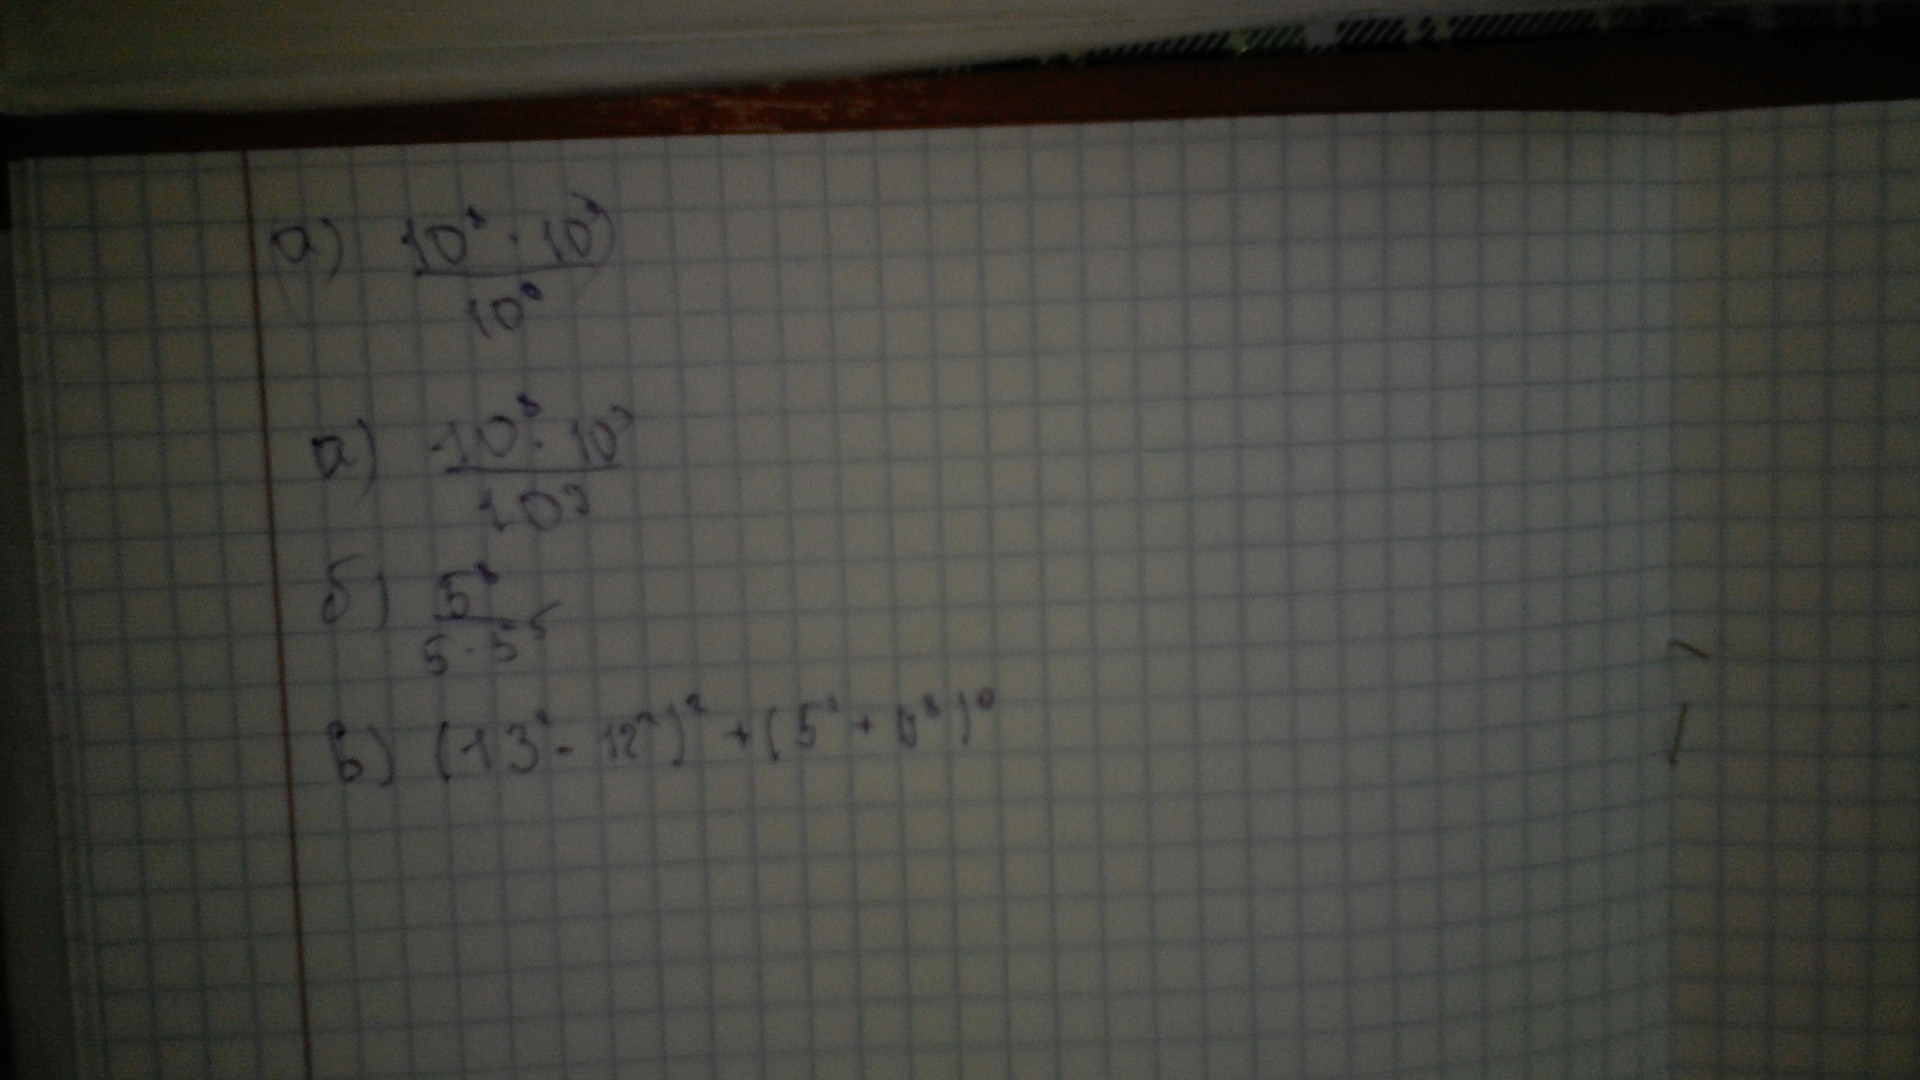 а) 10⁸ · 10³
10⁹
а) 10⁸ · 10³
10⁹
б) 5⁸
5 · 5⁵
в) (13² - 12²)² + (5³ + 6⁸)⁰